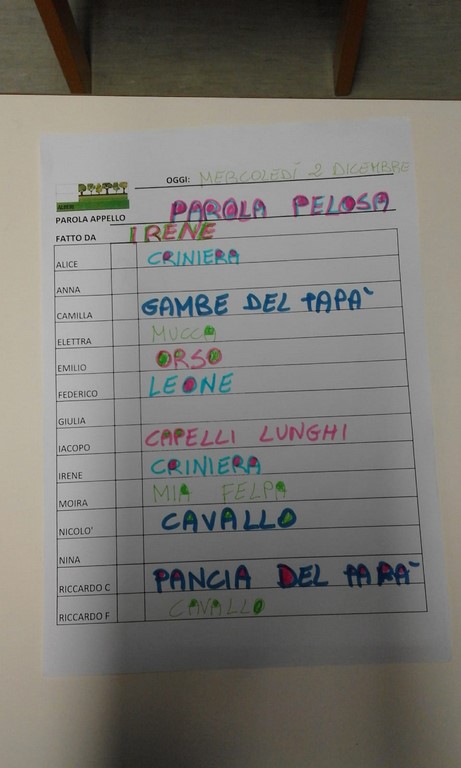 OGGI: MERCOLEDÌ 2 DICEMBRE
ALBERI
PAROLA APPELLO PAROLA PELOSA
FATTO DA IRENE
ALICE CRINIERA
ANNA
CAMILLA GAMBE DEL PAPA`
ELETTRA MUCCA
EMILIO ORSO
FEDERICO LEONE
GIULIA
IACOPO CAPELLI LUNGHI
IRENE CRINIERA
MOIRA MIA FELPA
NICOLO' CAVALLO
NINA
RICCARDO C PANCIA DEL PAPA`
RICCARDO F CAVALLO